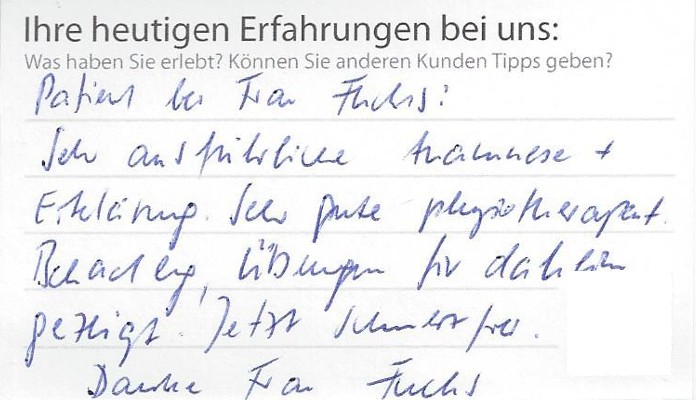 Ihre heutigen Erfahrungen bei uns:
Was haben Sie erlebt? Können Sie anderen Kunden Tipps geben?
Patient bei Frau Fuchs:
Sehr ausführliche Anamnese +
Erklärung. Sehr gute physiotherapeut.
Behandlung, Übungen für daheim
gezeigt. Jetzt schmerzfrei.
Danke Frau Fuchs